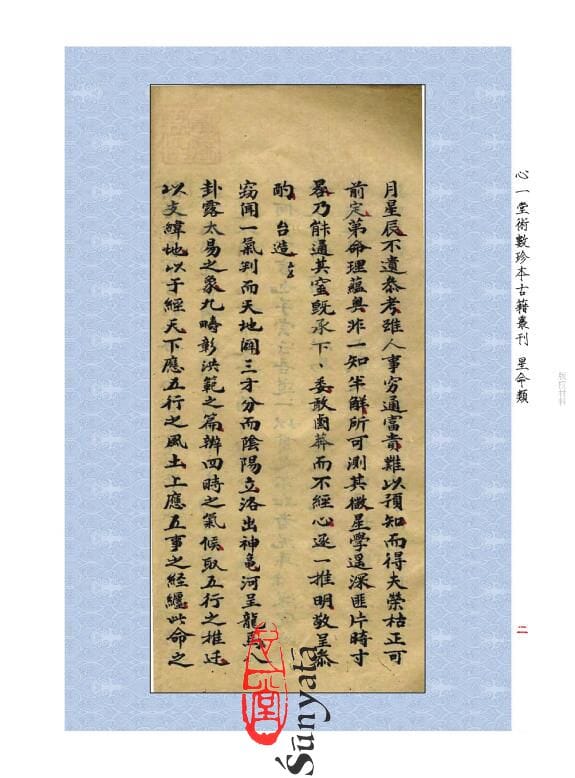 月星辰不遺叅考雖人事穷通富貴難以預知而得夫榮枯正可
前定第命理蘊奥非一知半觧所可測其微星學邃深匪片時寸
晷乃能通其窒既承下委敢鹵莽而不經心逐一推明敬呈叅
酌
台造
窃聞一氣判而天地闢三才分而陰陽立洛出神龜河呈龍馬八
卦露太易之象九疇彰洪範之篇辨四時之氣候取五行之推迁
以支緯地以于經天下應五行之風土上應五事之經纏此命之
心一堂術數珍本古籍叢刊 星命類
版权材料
二
心一堂
Śūnyatā